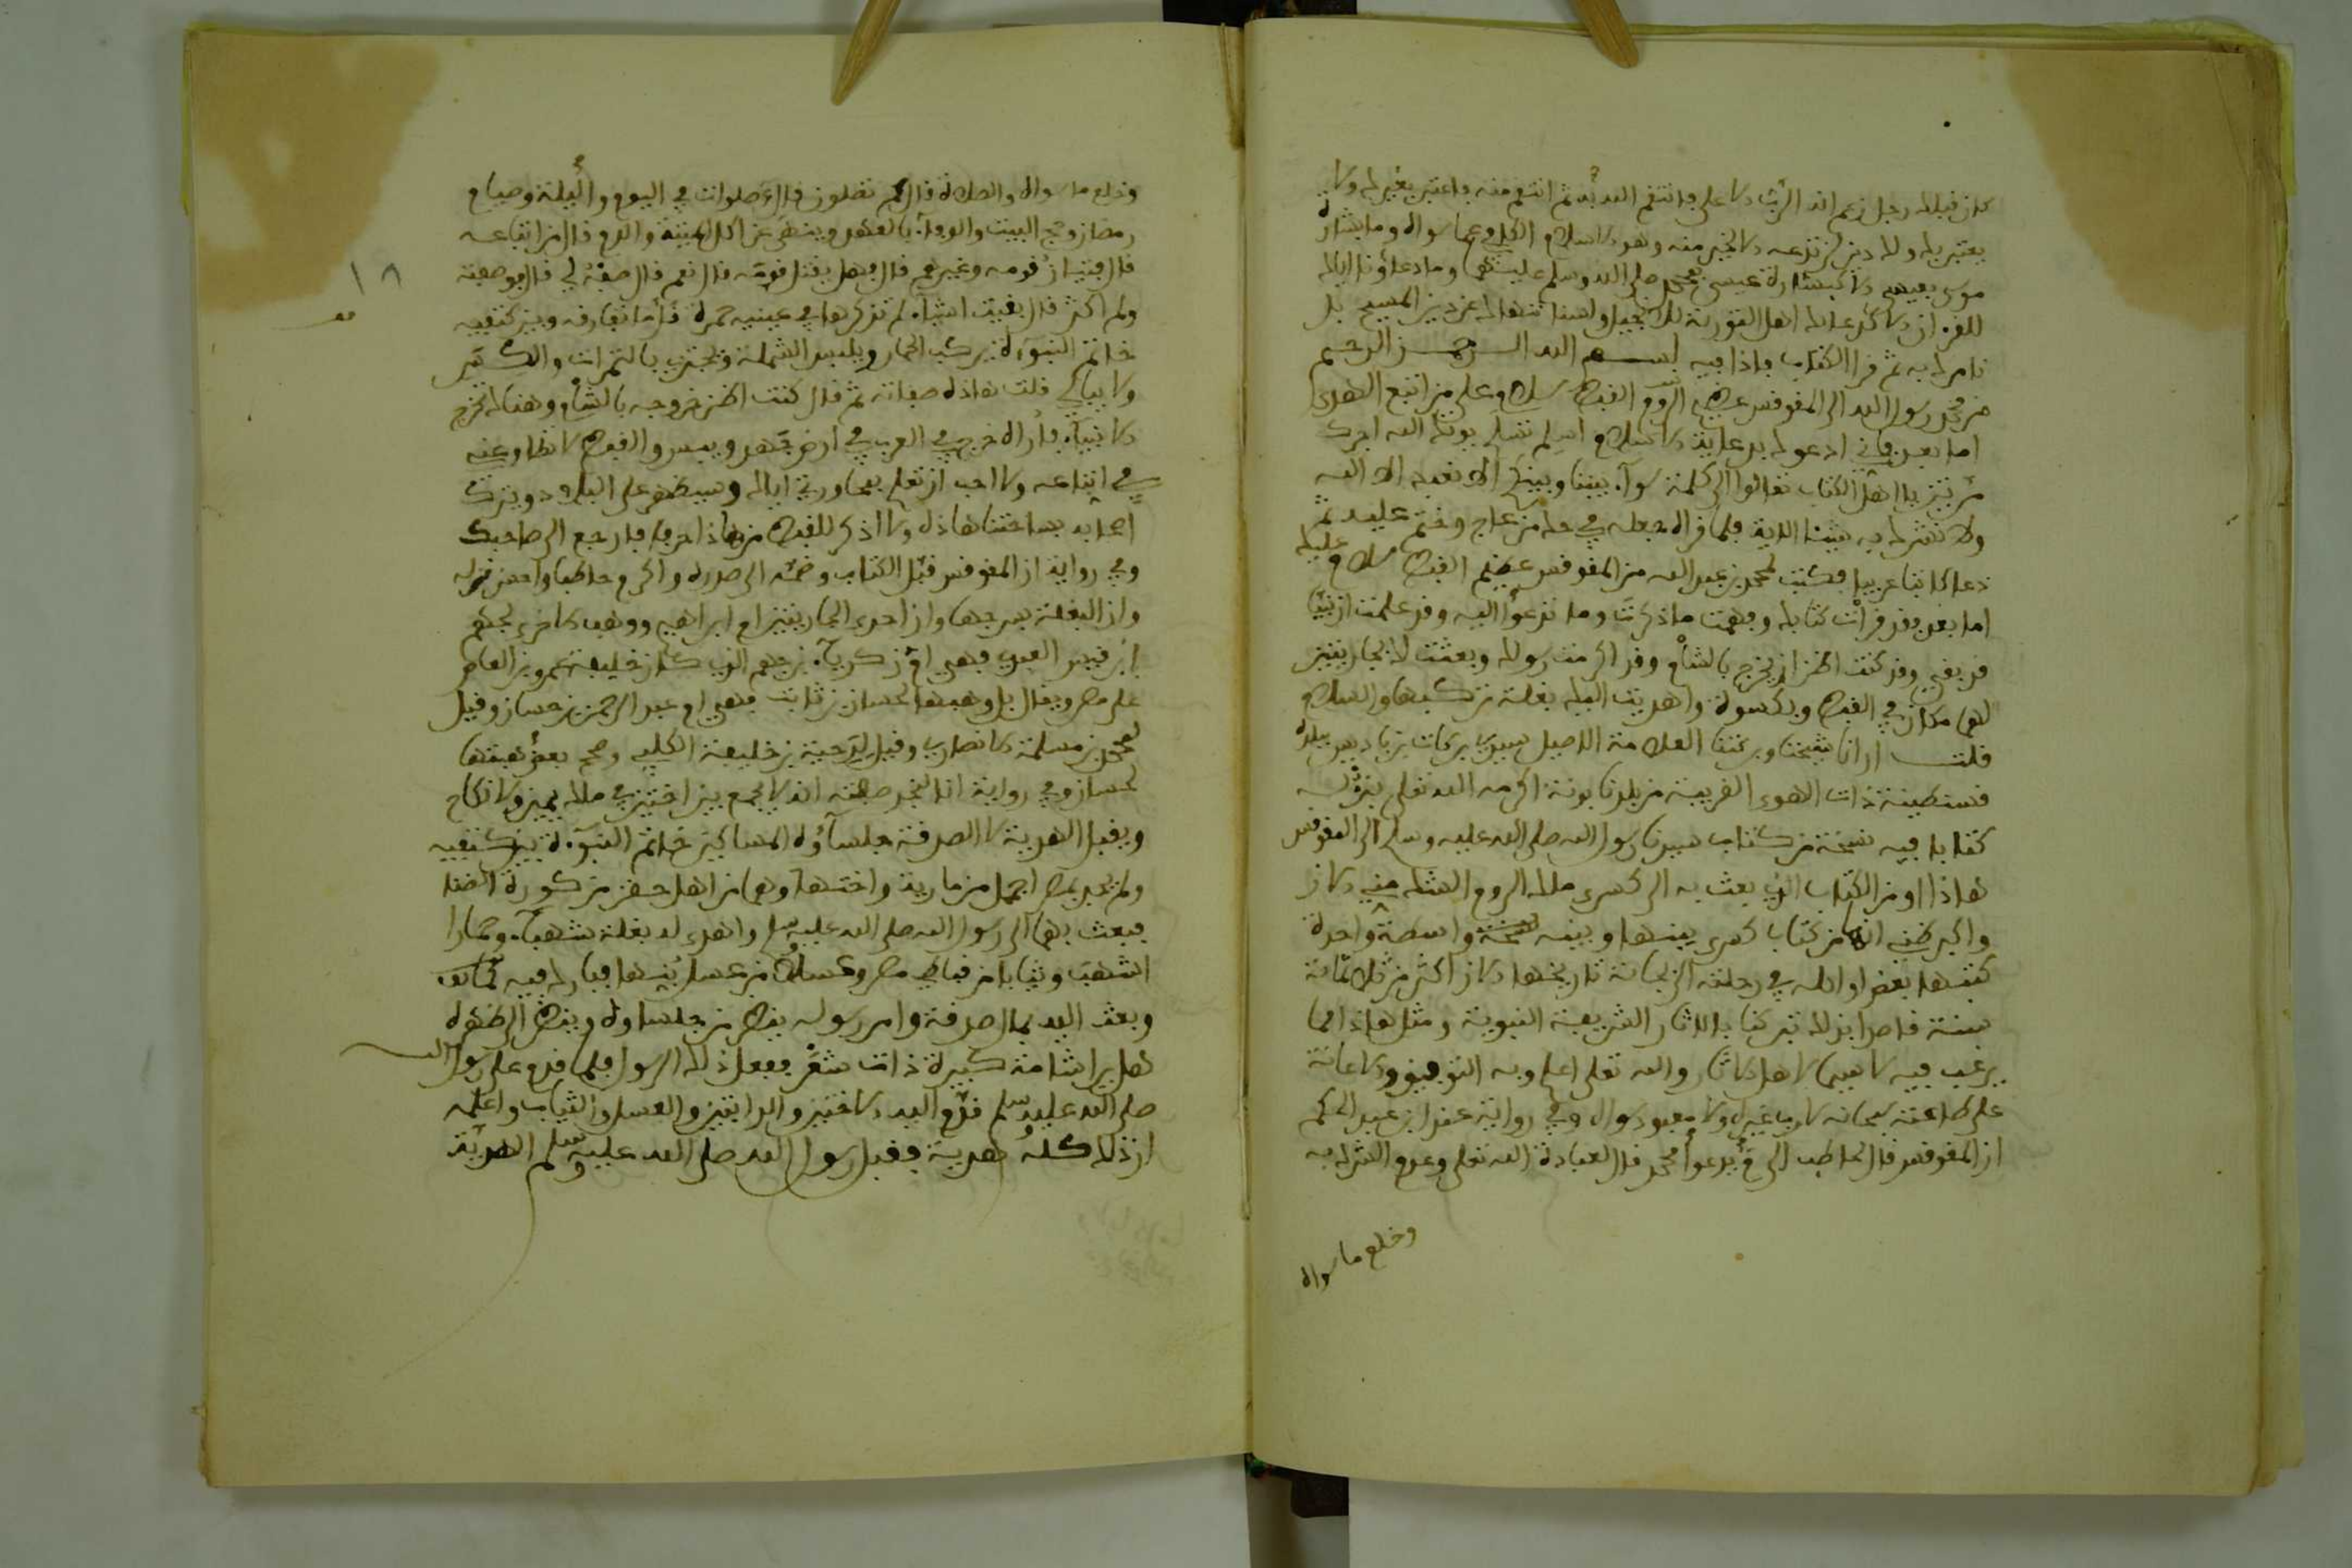 كان قبلك رجل زعم انه الرب الاعلى فانتقم الله به ثم انتقم منه فاعتبر بغيرك ولا
يعتبر بك ولك دين لن تدعه الا لخير منه وهو الاسلام الكافي عما سواه وما بشارة
موسى بعيسى الا كبشارة عيسى بمحمد صلى الله وسلم عليهما وما دعاؤنا اياك
للقرءان الا كدعائك اهل التورية للانجيل ولسنا ننهاك عن دين المسيح بل
نامرك به ثم قرا الكتاب فاذا فيه بسم الله الرحمن الرحيم
من محمد رسول الله الى المقوقس عظيم القبط سلام على من اتبع الهدى
اما بعد فاني ادعوك بدعاية الاسلام اسلم تسلم يوتك الله اجرك
مرتين يا اهل الكتاب تعالوا الى كلمة سواء بيننا وبينكم الا نعبد الا الله
ولا نشرك به شيئا الاية فلما قراه جعله في حق من عاج وختم عليه ثم
دعا كاتبا عربيا فكتب لمحمد بن عبد الله من المقوقس عظيم القبط سلام عليك
اما بعد فقد قرات كتابك وفهمت ما ذكرت وما تدعوا اليه وقد علمت ان نبيا
قد بقي وقد كنت اظن ان يخرج بالشام وقد اكرمت رسولك وبعثت لك بجاريتين
لهما مكان في القبط وبكسوة واهديت اليك بغلة تركبها والسلام
قلت ارانا شيخنا وبركتنا العلامة الاصيل سيدي بركات بن باديس ببلده
قسنطينة ذات الهوى القريبة من بلدنا بونة اكرمه الله تعلى بنزله
كتابا فيه نسخة من كتاب سيدنا رسول الله صلى الله عليه وسلم الى المقوقس
هاذا او من الكتاب الذي بعث به الى كسرى ملك الروم الشك مني الان
واكبر ظني انها من كتاب كسرى بينها وبينه نسخة واسطة واحدة
كتبها بعض اوائله في رحلته الى بجاية تاريخها الان اكثر من ثلاثمائة
سنة قاصدا بذلك تبركنا بالاثار الشريفة النبوية ومثل هاذا مما
يرغب فيه لا سيما لاهل الاثار والله تعلى اعلم وبه التوفيق والاعانة
على طاعته سبحانه لا رب غيره ولا معبود سواه وفي رواية عند ابن عبد الحكم
ان المقوقس قال لحاطب الى م يدعوا محمد قال لعبادة الله تعلى وعدم الشرك به
وخلع ما سواه
وخلع ما سواه والصلاة قال كم تصلون قال صلوات في اليوم والليلة وصيام
رمضان وحج البيت والوفاء بالعهد وينهى عن اكل الميتة والدم قال من اتباعه
قال فتيان قومه وغيرهم قال فهل يقتل قومه قال نعم قال صفه لي قال فوصفته
ولم اكثر قال بقيت اشياء لم تذكرها في عينيه حمرة قل ما تفارقه وبين كتفيه
خاتم النبوءة يركب الحمار ويلبس الشملة ويجتزي بالتمرات والكسر
ولا يبالي قلت هاذه صفاته ثم قال كنت اظن خروجه بالشام وهناك تخرج
الانبياء فاراه خرج في العرب في ارض جهد وبوس والقبط لا تطاوعني
في اتباعه ولا احب ان تعلم بمحاورتي اياك وسيظهر على البلاد وينزل
اصحابه بساحتنا هاذه ولا اذكر للقبط من هاذا حرفا فارجع الى صاحبك
وفي رواية ان المقوقس قبل الكتاب وضمه الى صدره واكرم حاطبا واحسن نزله
وان البغلة بسرجها وان احدى الجاريتين ام ابراهيم ووهب الاخرى لجهم
ابن قيس العبدي فهي ام زكرياء بن جهم الذي كان خليفة عمرو بن العاص
على مصر ويقال بل وهبها لحسان بن ثابت فهي ام عبد الرحمن بن حسان وقيل
لمحمد بن مسلمة الانصاري وقيل لدحية بن خليفة الكلبي وصحح بعض هبتها
لحسان وفي رواية انا لنجد صفته انه لا يجمع بين اختين في ملك يمين ولا نكاح
ويقبل الهدية لا الصدقة جلساؤه المساكين خاتم النبوءة بين كتفيه
ولم يجد بمصر اجمل من مارية واختها وهما من اهل حفن من كورة انصنا
فبعث بهما الى رسول الله صلى الله عليه وسلم واهدى له بغلة شهباء وحمارا
اشهب وثيابا من قباطي مصر وعسلا من عسل بنها فبارك فيه
وبعث اليه بمال صدقة وامر رسوله ينظر من جلساوه وينظر الى ظهره
هل يرا شامة كبيرة ذات شعر ففعل ذلك الرسول فلما قدم على رسول الله
صلى الله عليه وسلم قدم اليه الاختين والدابتين والعسل والثياب واعلمه
ان ذلك كله هدية فقبل رسول الله صلى الله عليه وسلم الهدية
١٨